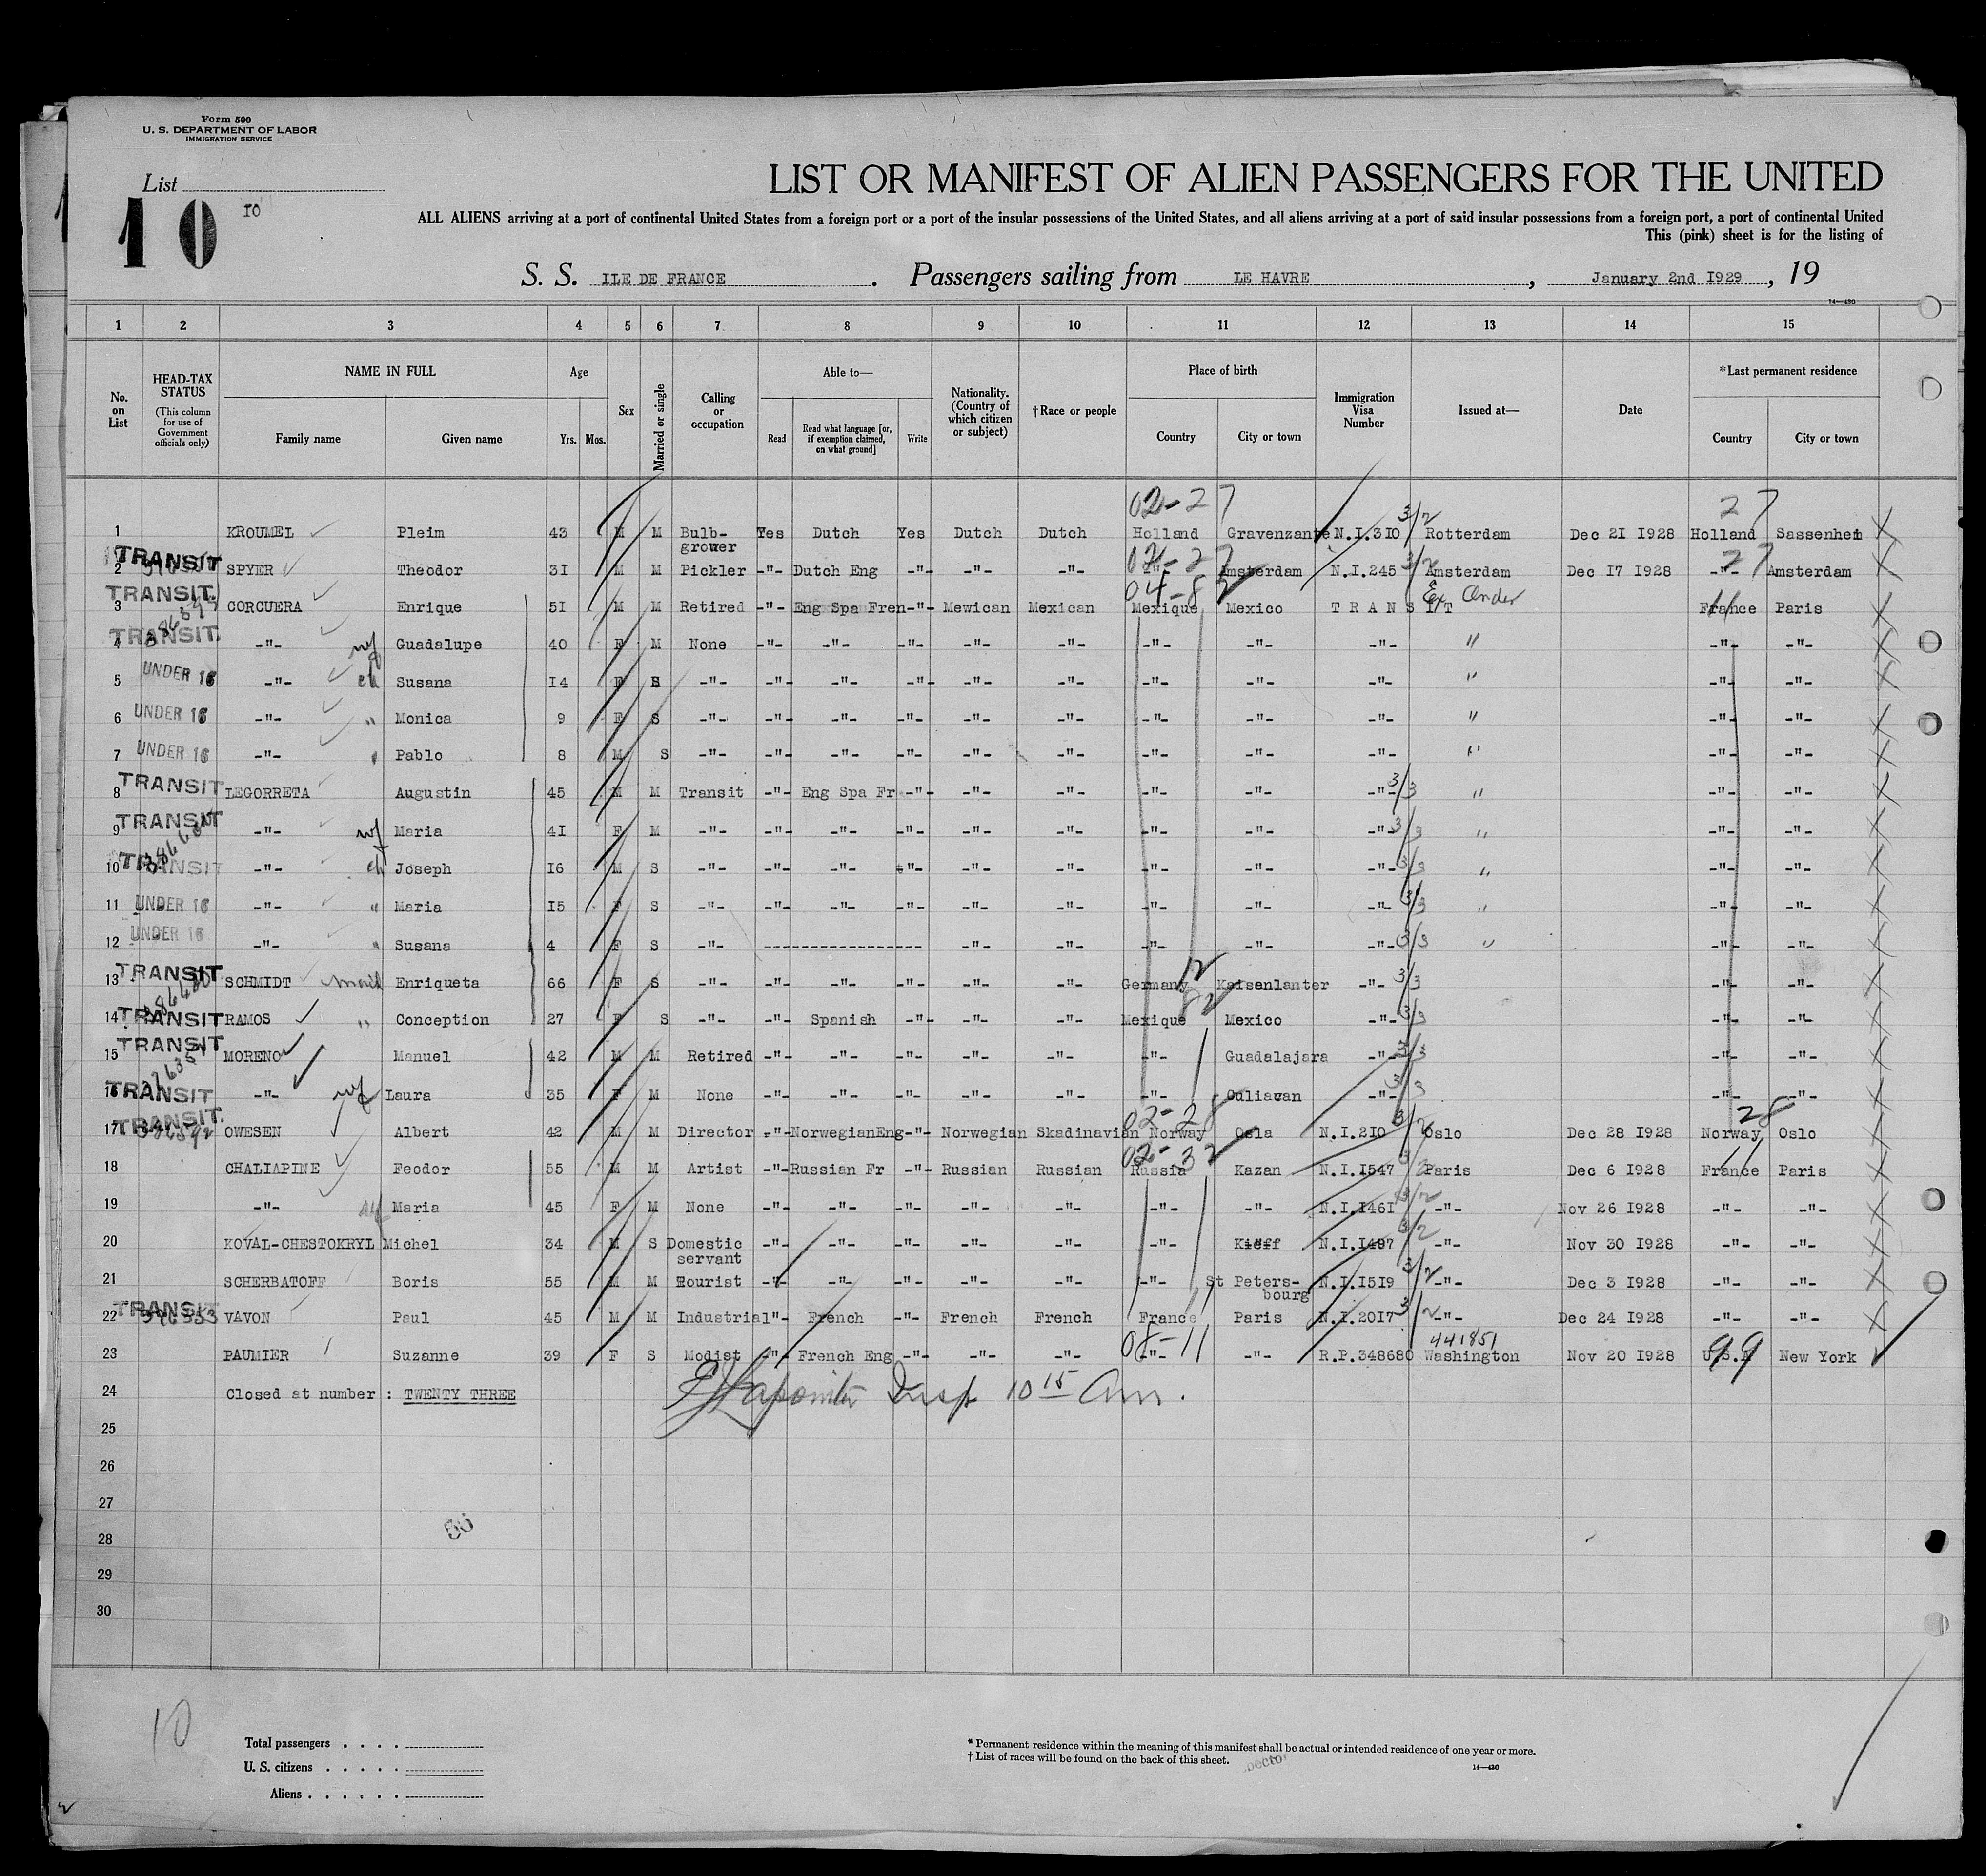 Form 500
U. S. DEPARTMENT OF LABOR
IMMIGRATION SERVICE
List
10
10
LIST OR MANIFEST OF ALIEN PASSENGERS FOR THE UNITED
ALL ALIENS arriving at a port of continental United States from a foreign port or a port of the insular possessions of the United States, and all aliens arriving at a port of said insular possessions from a foreign port, a port of continental United
This (pink) sheet is for the listing of
S. S. ILE DE FRANCE. Passengers sailing from LE HAVRE, January 2nd 1929, 19
14—430
1 2 3 4 5 6 7 8 9 10 11 12 13 14 15
No. on List
HEAD-TAX STATUS (This column for use of Government officials only)
NAME IN FULL
Family name Given name
Age
Yrs. Mos.
Sex
Married or single
Calling or occupation
Able to—
Read Read what language [or, if exemption claimed, on what ground] Write
Nationality. (Country of which citizen or subject)
†Race or people
Place of birth
Country City or town
Immigration Visa Number
Issued at—
Date
*Last permanent residence
Country City or town
02-27 27
1 KROUMEL Pleim 43 M M Bulb-grower Yes Dutch Yes Dutch Dutch Holland Gravenzante N.I.310 3/2 Rotterdam Dec 21 1928 Holland Sassenhem
2 TRANSIT SPYER Theodor 31 M M Pickler -"- Dutch Eng -"- -"- -"- -"- Amsterdam N.I.245 3/2 Amsterdam Dec 17 1928 -"- 27 Amsterdam
3 TRANSIT CORCUERA Enrique 51 M M Retired -"- Eng Spa Fren -"- Mewican Mexican Mexique Mexico TRANSIT France Paris
4 TRANSIT -"- wf Guadalupe 40 F M None -"- -"- -"- -"- -"- -"- -"- -"- " -"- -"-
5 UNDER 16 -"- ch Susana 14 F S -"- -"- -"- -"- -"- -"- -"- -"- -"- " -"- -"-
6 UNDER 16 -"- " Monica 9 F S -"- -"- -"- -"- -"- -"- -"- -"- -"- " -"- -"-
7 UNDER 16 -"- " Pablo 8 M S -"- -"- -"- -"- -"- -"- -"- -"- -"- " -"- -"-
8 TRANSIT LEGORRETA Augustin 45 M M Transit -"- Eng Spa Fr -"- -"- -"- -"- -"- -"- 3/3 " -"- -"-
9 TRANSIT -"- wf Maria 41 F M -"- -"- -"- -"- -"- -"- -"- -"- -"- 3/3 " -"- -"-
10 TRANSIT -"- ch Joseph 16 M S -"- -"- -"- -"- -"- -"- -"- -"- -"- 3/3 " -"- -"-
11 UNDER 16 -"- " Maria 15 F S -"- -"- -"- -"- -"- -"- -"- -"- -"- 3/3 " -"- -"-
12 UNDER 16 -"- " Susana 4 F S -"- ----------------- -"- -"- -"- -"- -"- 3/3 " -"- -"-
13 TRANSIT SCHMIDT maid Enriqueta 66 F S -"- -"- -"- -"- -"- -"- Germany Kaisenlanter -"- 3/3 -"- -"-
14 TRANSIT RAMOS " Conception 27 F S -"- -"- Spanish -"- -"- -"- Mexique Mexico -"- 3/3 -"- -"-
15 TRANSIT MORENO Manuel 42 M M Retired -"- -"- -"- -"- -"- -"- Guadalajara -"- 3/3 -"- -"-
16 TRANSIT -"- wf Laura 35 F M None -"- -"- -"- -"- -"- -"- Culiacan -"- 3/3 -"- -"-
02-28 28
17 TRANSIT OWESEN Albert 42 M M Director -"- NorwegianEng -"- Norwegian Skadinavian Norway Osla N.I.210 3/2 Oslo Dec 28 1928 Norway Oslo
18 CHALIAPINE Feodor 55 M M Artist -"- Russian Fr -"- Russian Russian Russia Kazan N.I.1547 Paris Dec 6 1928 France Paris
19 -"- wf Maria 45 F M None -"- -"- -"- -"- -"- -"- -"- N.I.1461 3/2 -"- Nov 26 1928 -"- -"-
20 KOVAL-CHESTOKRYL Michel 34 M S Domestic servant -"- -"- -"- -"- -"- -"- Kieff N.I.1497 3/2 -"- Nov 30 1928 -"- -"-
21 SCHERBATOFF Boris 55 M M Tourist -"- -"- -"- -"- -"- -"- St Peters-bourg N.I.1519 3/2 -"- Dec 3 1928 -"- -"-
22 TRANSIT VAVON Paul 45 M M Industrial -"- French -"- French French France Paris N.I.2017 3/2 -"- Dec 24 1928 -"- -"-
441851
23 PAUMIER Suzanne 39 F S Modist -"- French Eng -"- -"- -"- -"- -"- R.P.348680 Washington Nov 20 1928 U.S.A 99 New York
08-11
24 Closed at number : TWENTY THREE Insp 10 15 Am.
25
26
27
28
29
30
56
10
Total passengers . . . .
U. S. citizens . . . . .
Aliens . . . . . .
* Permanent residence within the meaning of this manifest shall be actual or intended residence of one year or more.
† List of races will be found on the back of this sheet.
14—430